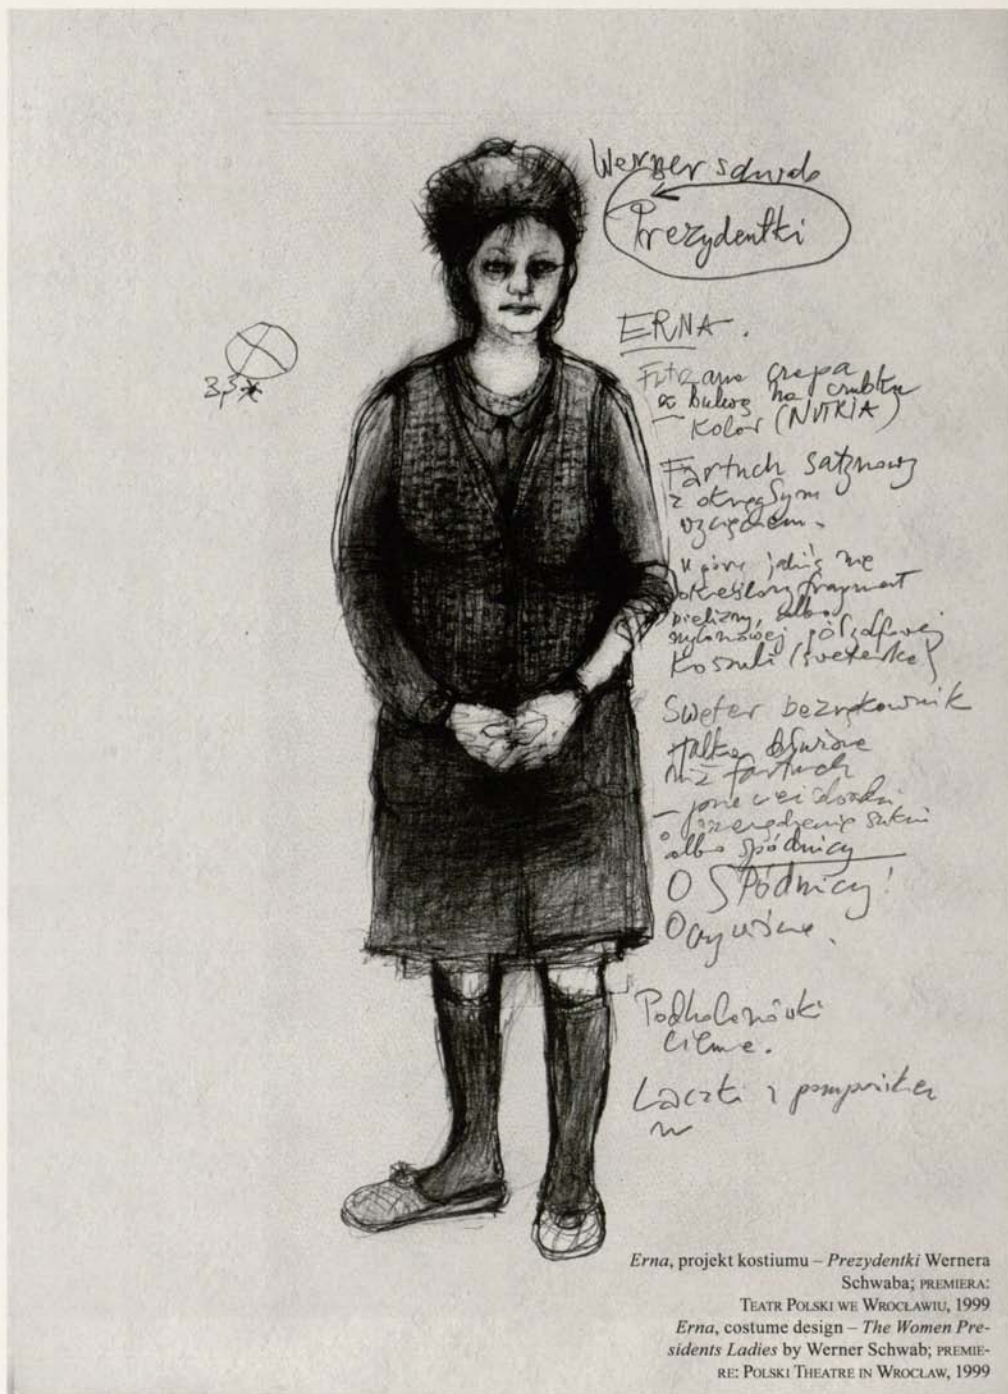 Werner Schwab
Prezydentki
ERNA.
Futrzana czapa
na czubku
Kolor (NUTRIA)
Fartuch satynowy
z okrągłym
wycięciem.
U góry jakiś nie
określony fragment
bielizny, albo
nylonowej
Koszuli (sweterka)
Sweter bezrękawnik
fartuch
albo spódnicy
O SPÓDNICY!
Oczywiście.
Podkolanówki
Laczki z pomponikiem
3,5
Erna, projekt kostiumu – Prezydentki Wernera
Schwaba; PREMIERA:
TEATR POLSKI WE WROCŁAWIU, 1999
Erna, costume design – The Women Pre-
sidents Ladies by Werner Schwab; PREMIE-
RE: POLSKI THEATRE IN WROCŁAW, 1999